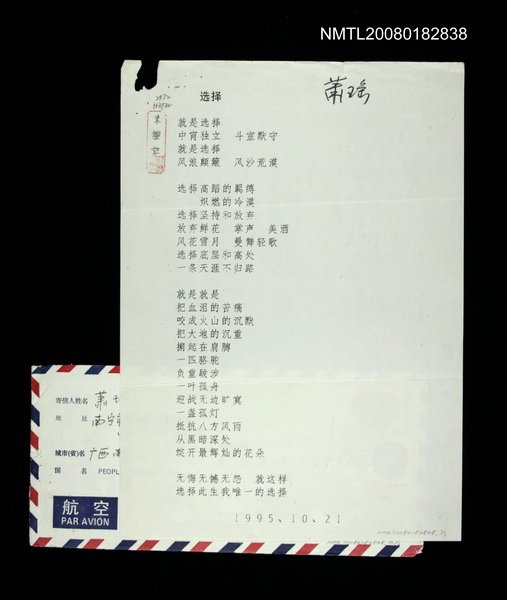 NMTL20080182838
萧瑶
选择
就是选择
中宵独立 斗室默守
就是选择
风浪颠簸 风沙荒漠
选择高蹈的羁缚
炽燃的冷漠
选择坚持和放弃
放弃鲜花 掌声 美酒
风花雪月 曼舞轻歌
选择底层和高处
一条天涯不归路
就是就是
把血泪的苦痛
咬成火山的沉默
把大地的沉重
搁起在肩膊
一匹骆驼
负重跋涉
一叶孤舟
迎战无边旷寞
一盏孤灯
抵抗八方风雨
从黑暗深处
绽开最辉灿的花朵
无悔无憾无怨 就这样
选择此生我唯一的选择
1995.10.21
寄信人姓名 萧
地 址 南宁
城市(省)名 广西
国 名 PEOPL
航空
PAR AVION